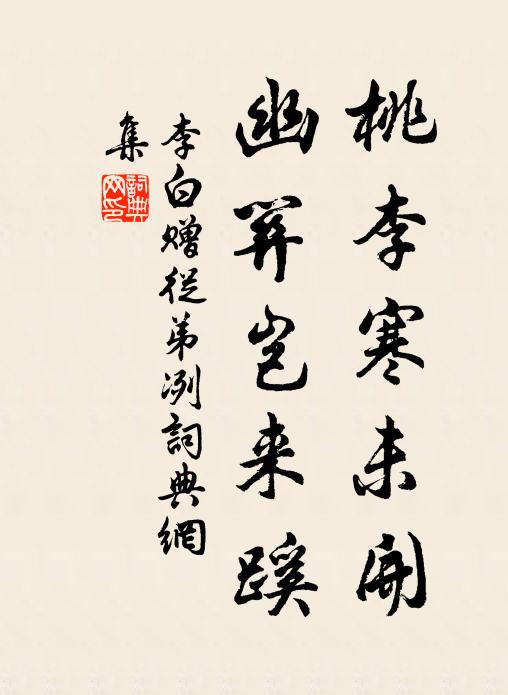 桃李寒未開
幽關豈来蹊
李白赠從弟冽詞典網
集
詞典
网印